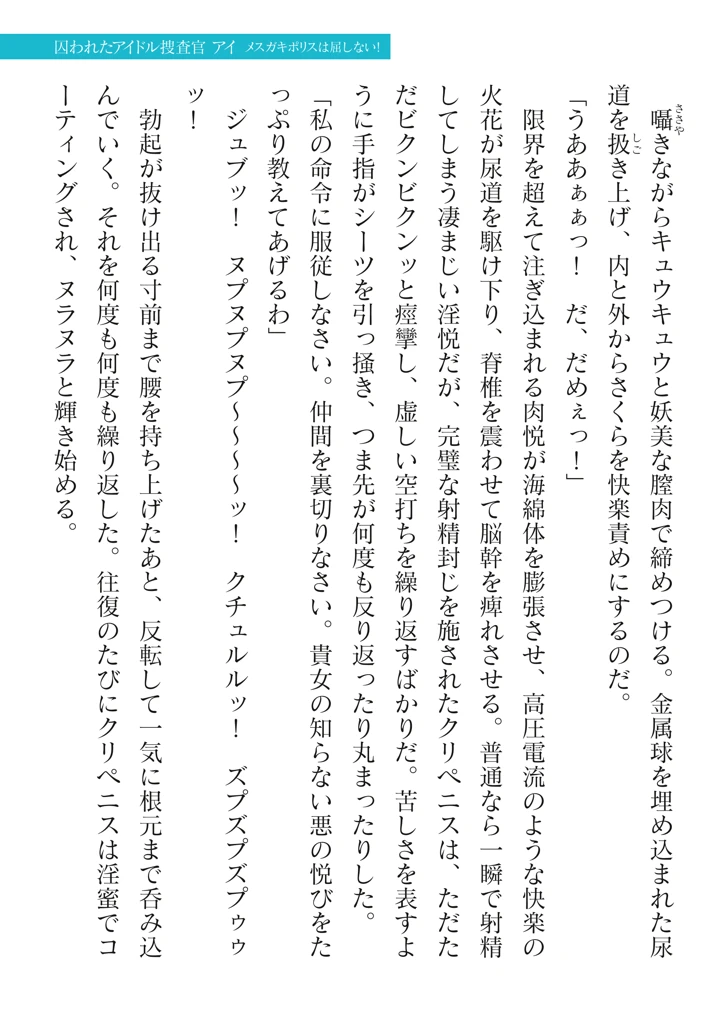 囚われたアイドル捜査官 アイ メスガキポリスは屈しない!
囁きながらキュウキュウと妖美な膣肉で締めつける。金属球を埋め込まれた尿
道を扱き上げ、内と外からさくらを快楽責めにするのだ。
「うああぁぁっ! だ、だめぇっ!」
限界を超えて注ぎ込まれる肉悦が海綿体を膨張させ、高圧電流のような快楽の
火花が尿道を駆け下り、脊椎を震わせて脳幹を痺れさせる。普通なら一瞬で射精
してしまう凄まじい淫悦だが、完璧な射精封じを施されたクリペニスは、ただた
だビクンビクンッと痙攣し、虚しい空打ちを繰り返すばかりだ。苦しさを表すよ
うに手指がシーツを引っ掻き、つま先が何度も反り返ったり丸まったりした。
「私の命令に服従しなさい。仲間を裏切りなさい。貴女の知らない悪の悦びをた
っぷり教えてあげるわ」
ジュブッ! ヌプヌプヌプ～～～～ッ! クチュルルッ! ズプズプズプゥゥ
ッ!
勃起が抜け出る寸前まで腰を持ち上げたあと、反転して一気に根元まで呑み込
んでいく。それを何度も何度も繰り返した。往復のたびにクリペニスは淫蜜でコ
ーティングされ、ヌラヌラと輝き始める。